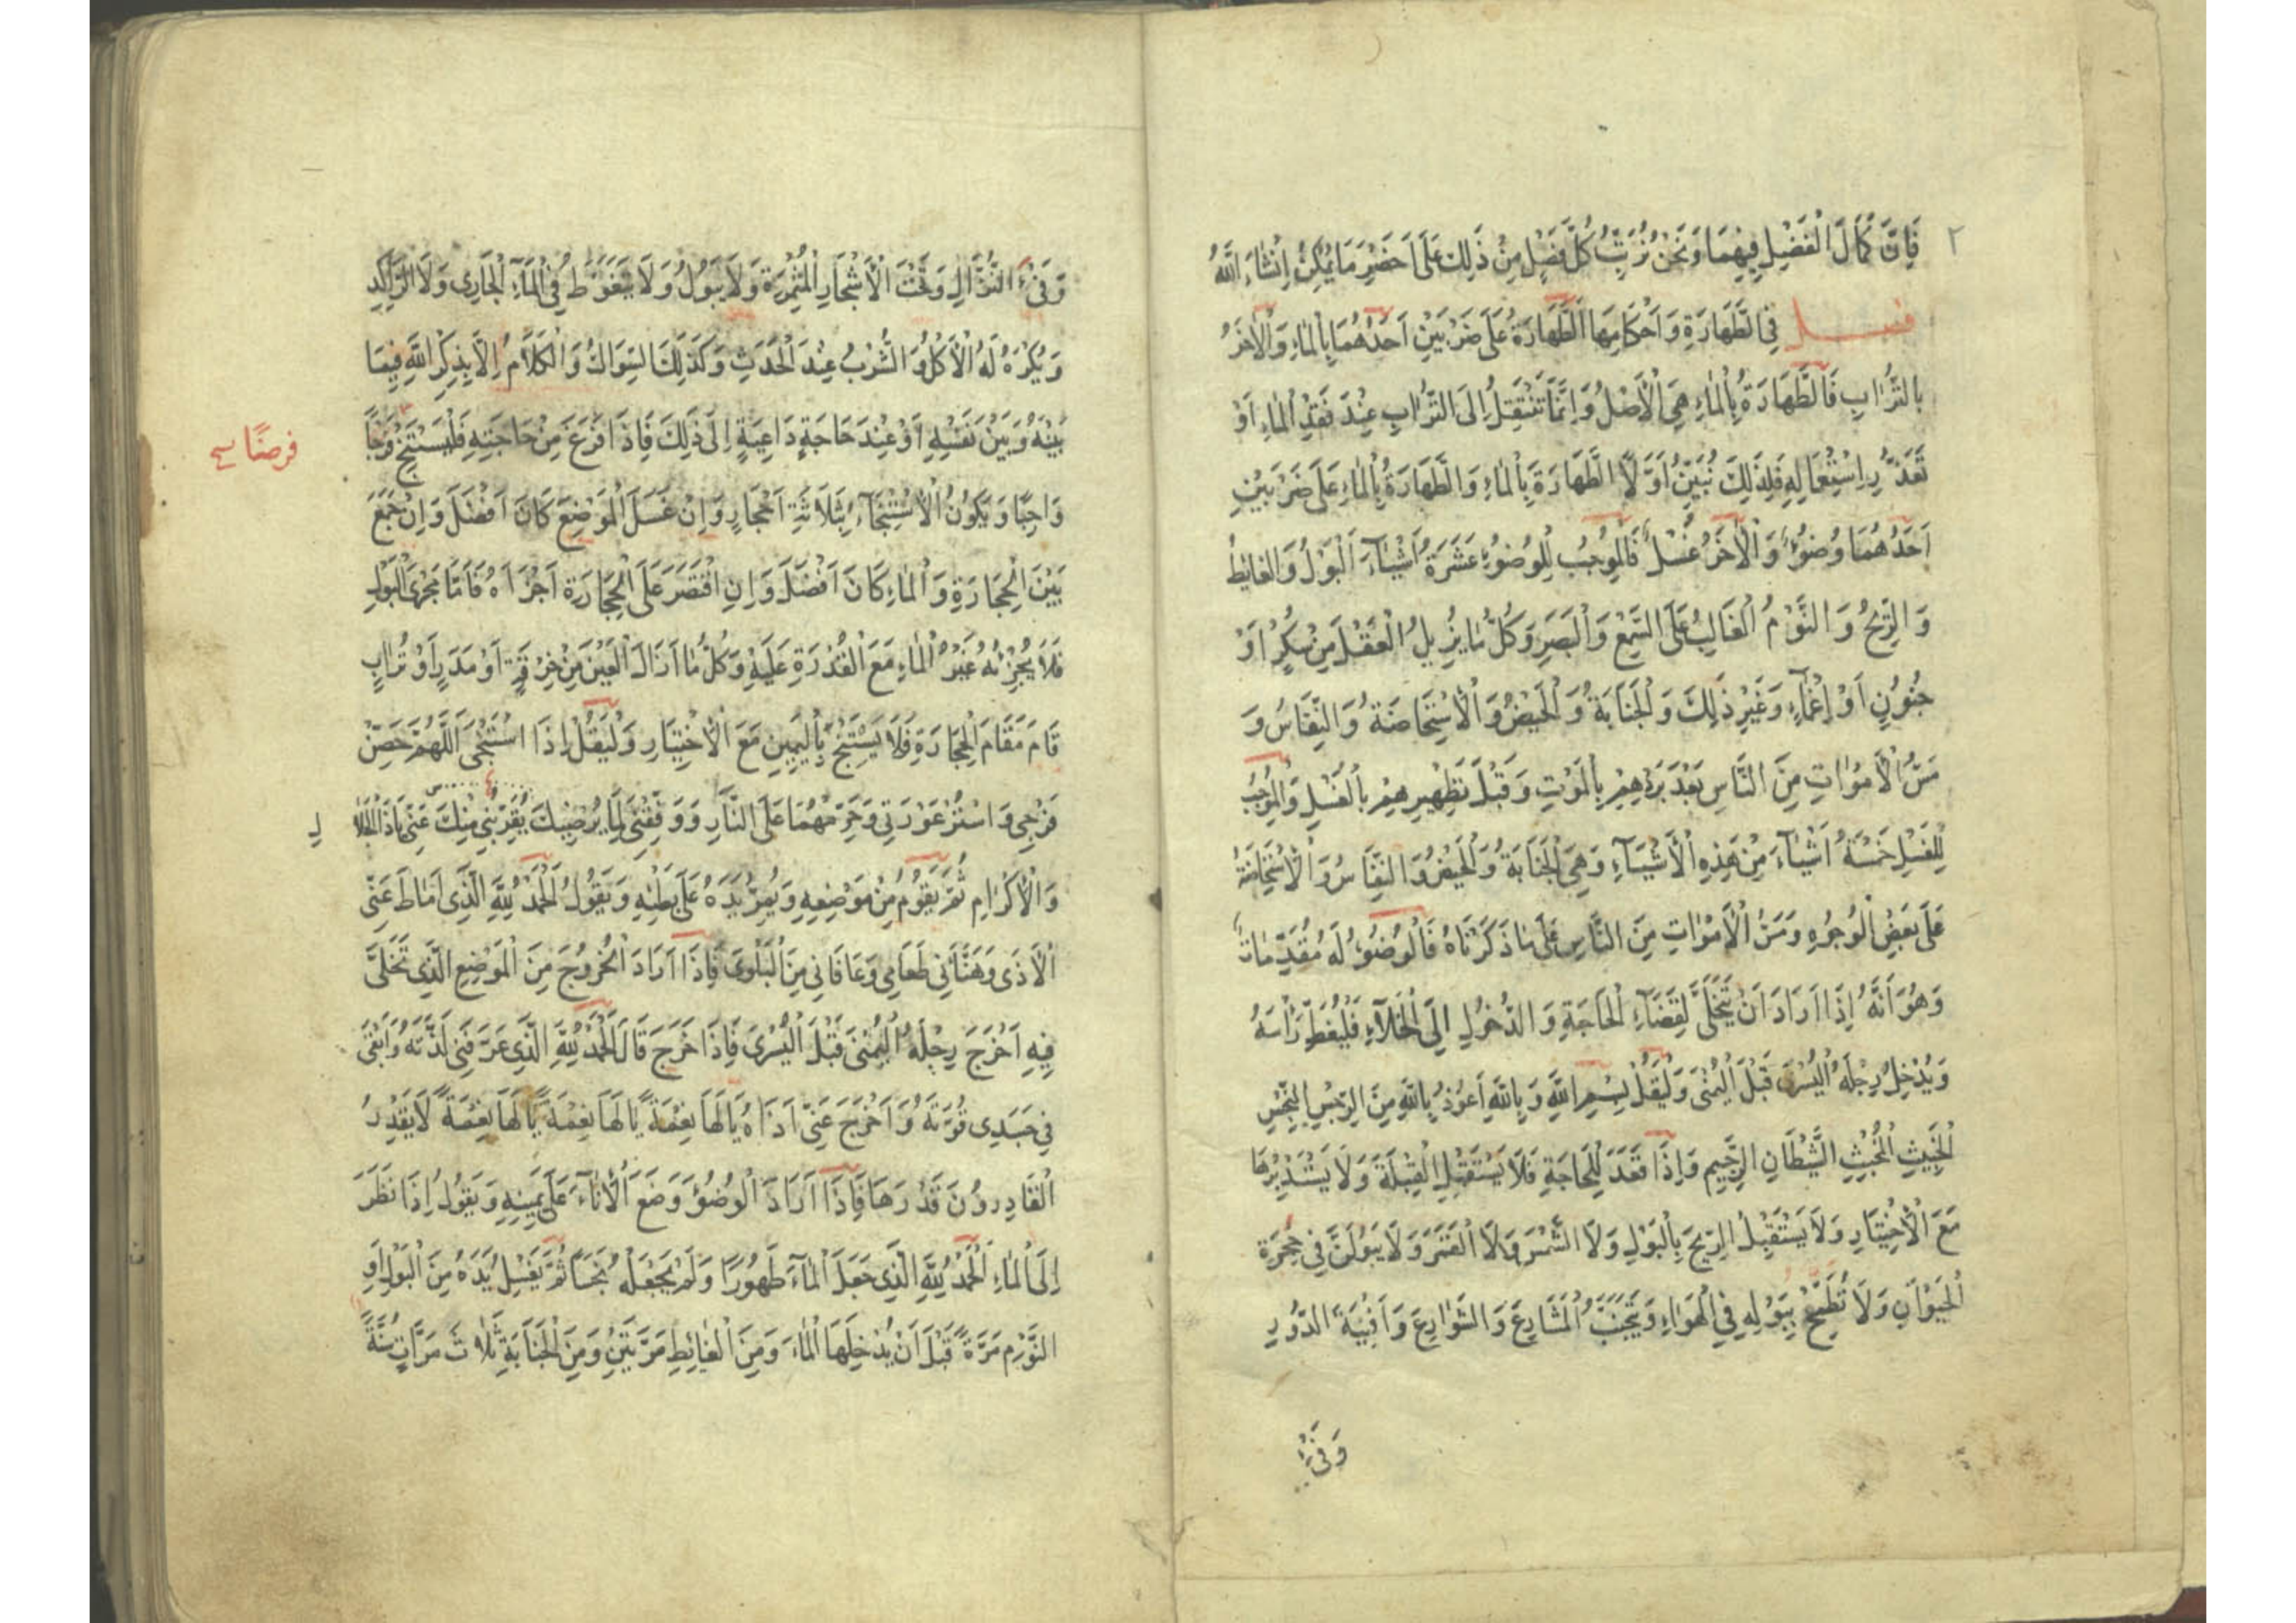 ٢
فَاِنَّ كَمَالَ الْفَضْلِ فِيهِمَا وَنَحْنُ نُرَتِّبُ كُلَّ فَصْلٍ مِنْ ذَلِكَ عَلَى اَخْصَرِ مَا يُمْكِنُ اِنْشَاءَ اللَّهُ
فصل فِي الطَّهَارَةِ وَاَحْكَامِهَا اَلطَّهَارَةُ عَلَى ضَرْبَيْنِ اَحَدُهُمَا بِالْمَاءِ وَالْاٰخَرُ
بِالتُّرَابِ فَالطَّهَارَةُ بِالْمَاءِ هِيَ الْاَصْلُ وَاِنَّمَا تَنْتَقِلُ اِلَى التُّرَابِ عِنْدَ فَقْدِ الْمَاءِ اَوْ
تَعَذُّرِ اِسْتِعْمَالِهِ فَلِذَلِكَ نُبَيِّنُ اَوَّلًا الطَّهَارَةَ بِالْمَاءِ وَالطَّهَارَةُ بِالْمَاءِ عَلَى ضَرْبَيْنِ
اَحَدُهُمَا وُضُوءٌ وَالْاٰخَرُ غُسْلٌ فَالْمُوجِبُ لِلْوُضُوءِ عَشَرَةُ اَشْيَآءَ اَلْبَوْلُ وَالْغَايِطُ
وَالرِّيحُ وَالنَّوْمُ الْغَالِبُ عَلَى السَّمْعِ وَالْبَصَرِ وَكُلُّ مَا يُزِيلُ الْعَقْلَ مِنْ سُكْرٍ اَوْ
جُنُونٍ اَوْ اِغْمَآءٍ وَغَيْرِ ذَلِكَ وَالْجَنَابَةُ وَالْحَيْضُ وَالْاِسْتِحَاضَةُ وَالنِّفَاسُ وَ
مَسُّ الْاَمْوَاتِ مِنَ النَّاسِ بَعْدَ بَرْدِهِمْ بِالْمَوْتِ وَقَبْلَ تَطْهِيرِهِمْ بِالْغُسْلِ وَالْمُوجِبُ
لِلْغُسْلِ خَمْسَةُ اَشْيَآءَ مِنْ هَذِهِ الْاَشْيَآءِ وَهِيَ الْجَنَابَةُ وَالْحَيْضُ وَالنِّفَاسُ وَالْاِسْتِحَاضَةُ
عَلَى بَعْضِ الْوُجُوهِ وَمَسُّ الْاَمْوَاتِ مِنَ النَّاسِ عَلَى مَا ذَكَرْنَاهُ فَالْوُضُوءُ لَهُ مُقَدِّمَاتٌ
وَهُوَ اَنَّهُ اِذَا اَرَادَ اَنْ يَتَخَلَّى لِقَضَآءِ الْحَاجَةِ وَالدُّخُولِ اِلَى الْخَلَآءِ فَلْيُغَطِّ رَأْسَهُ
وَيُدْخِلُ رِجْلَهُ الْيُسْرَى قَبْلَ الْيُمْنَى وَلْيَقُلْ بِسْمِ اللَّهِ وَبِاللَّهِ اَعُوذُ بِاللَّهِ مِنَ الرِّجْسِ النِّجْسِ
الْخَبِيثِ الْمُخْبِثِ الشَّيْطَانِ الرَّجِيمِ وَاِذَا قَعَدَ لِلْحَاجَةِ فَلَا يَسْتَقْبِلِ الْقِبْلَةَ وَلَا يَسْتَدْبِرْهَا
مَعَ الْاِخْتِيَارِ وَلَا يَسْتَقْبِلُ الرِّيحَ بِالْبَوْلِ وَلَا الشَّمْسَ وَلَا الْقَمَرَ وَلَا يَبُولَنَّ فِي جُحْرَةِ
الْحَيَوَانِ وَلَا تُطَمِّحْ بِبَوْلِهِ فِي الْهَوَاءِ وَيَتَجَنَّبُ الْمَشَارِعَ وَالشَّوَارِعَ وَاَفْنِيَةَ الدُّورِ
وَفَيْءِ
وَفَيْءِ النُّزَّالِ وَتَحْتَ الْاَشْجَارِ الْمُثْمِرَةِ وَلَا يَبُولُ وَلَا يَتَغَوَّطُ فِي الْمَآءِ الْجَارِي وَلَا الرَّاكِدِ
وَيُكْرَهُ لَهُ الْاَكْلُ وَالشُّرْبُ عِنْدَ الْحَدَثِ وَكَذَلِكَ السِّوَاكُ وَالْكَلَامُ اِلَّا بِذِكْرِ اللَّهِ فِيمَا
بَيْنَهُ وَبَيْنَ نَفْسِهِ اَوْ عِنْدَ حَاجَةٍ دَاعِيَةٍ اِلَى ذَلِكَ فَاِذَا فَرَغَ مِنْ حَاجَتِهِ فَلْيَسْتَنْجِ
فرضًا
وَاجِبًا وَيَكُونُ الْاِسْتِنْجَآءُ بِثَلَاثَةِ اَحْجَارٍ وَاِنْ غَسَلَ الْمَوْضِعَ كَانَ اَفْضَلَ وَاِنْ جَمَعَ
بَيْنَ الْحِجَارَةِ وَالْمَاءِ كَانَ اَفْضَلَ وَاِنِ اقْتَصَرَ عَلَى الْحِجَارَةِ اَجْزَاَهُ فَاَمَّا مَجْرَى الْبَوْلِ
فَلَا يُجْزِئُهُ غَيْرُ الْمَاءِ مَعَ الْقُدْرَةِ عَلَيْهِ وَكُلُّ مَا اَزَالَ الْعَيْنَ مِنْ خِرْقَةٍ اَوْ مَدَرٍ اَوْ تُرَابٍ
قَامَ مَقَامَ الْحِجَارَةِ فَلَا يَسْتَنْجِ بِالْيَمِينِ مَعَ الْاِخْتِيَارِ وَلْيَقُلْ اِذَا اسْتَنْجَى اَللَّهُمَّ حَصِّنْ
فَرْجِي وَاسْتُرْ عَوْرَتِي وَحَرِّمْهُمَا عَلَى النَّارِ وَوَفِّقْنِي لِمَا يُرْضِيكَ يُقَرِّبُنِي مِنْكَ عَنِّي يَاذَا الْجَلَالِ
وَالْاِكْرَامِ ثُمَّ يَقُومُ مِنْ مَوْضِعِهِ وَيُمِرُّ يَدَهُ عَلَى بَطْنِهِ وَيَقُولُ اَلْحَمْدُ لِلَّهِ الَّذِي اَمَاطَ عَنِّي
الْاَذَى وَهَنَّأَنِي طَعَامِي وَعَافَانِي مِنَ الْبَلْوَى فَاِذَا اَرَادَ الْخُرُوجَ مِنَ الْمَوْضِعِ الَّذِي تَخَلَّى
فِيهِ اَخْرَجَ رِجْلَهُ الْيُمْنَى قَبْلَ الْيُسْرَى فَاِذَا خَرَجَ قَالَ اَلْحَمْدُ لِلَّهِ الَّذِي عَرَّفَنِي لَذَّتَهُ وَاَبْقَى
فِي جَسَدِي قُوَّتَهُ وَاَخْرَجَ عَنِّي اَذَاهُ يَا لَهَا نِعْمَةً يَا لَهَا نِعْمَةً يَا لَهَا نِعْمَةً لَا يَقْدِرُ
الْقَادِرُونَ قَدْرَهَا فَاِذَا اَرَادَ الْوُضُوءَ وَضَعَ الْاِنَآءَ عَلَى يَمِينِهِ وَيَقُولُ اِذَا نَظَرَ
اِلَى الْمَاءِ اَلْحَمْدُ لِلَّهِ الَّذِي جَعَلَ الْمَآءَ طَهُورًا وَلَمْ يَجْعَلْهُ نَجَسًا ثُمَّ يَغْسِلُ يَدَهُ مِنَ الْبَوْلِ اَوِ
النَّوْمِ مَرَّةً قَبْلَ اَنْ يُدْخِلَهَا الْمَاءَ وَمِنَ الْغَائِطِ مَرَّتَيْنِ وَمِنَ الْجَنَابَةِ ثَلَاثَ مَرَّاتٍ سُنَّةً